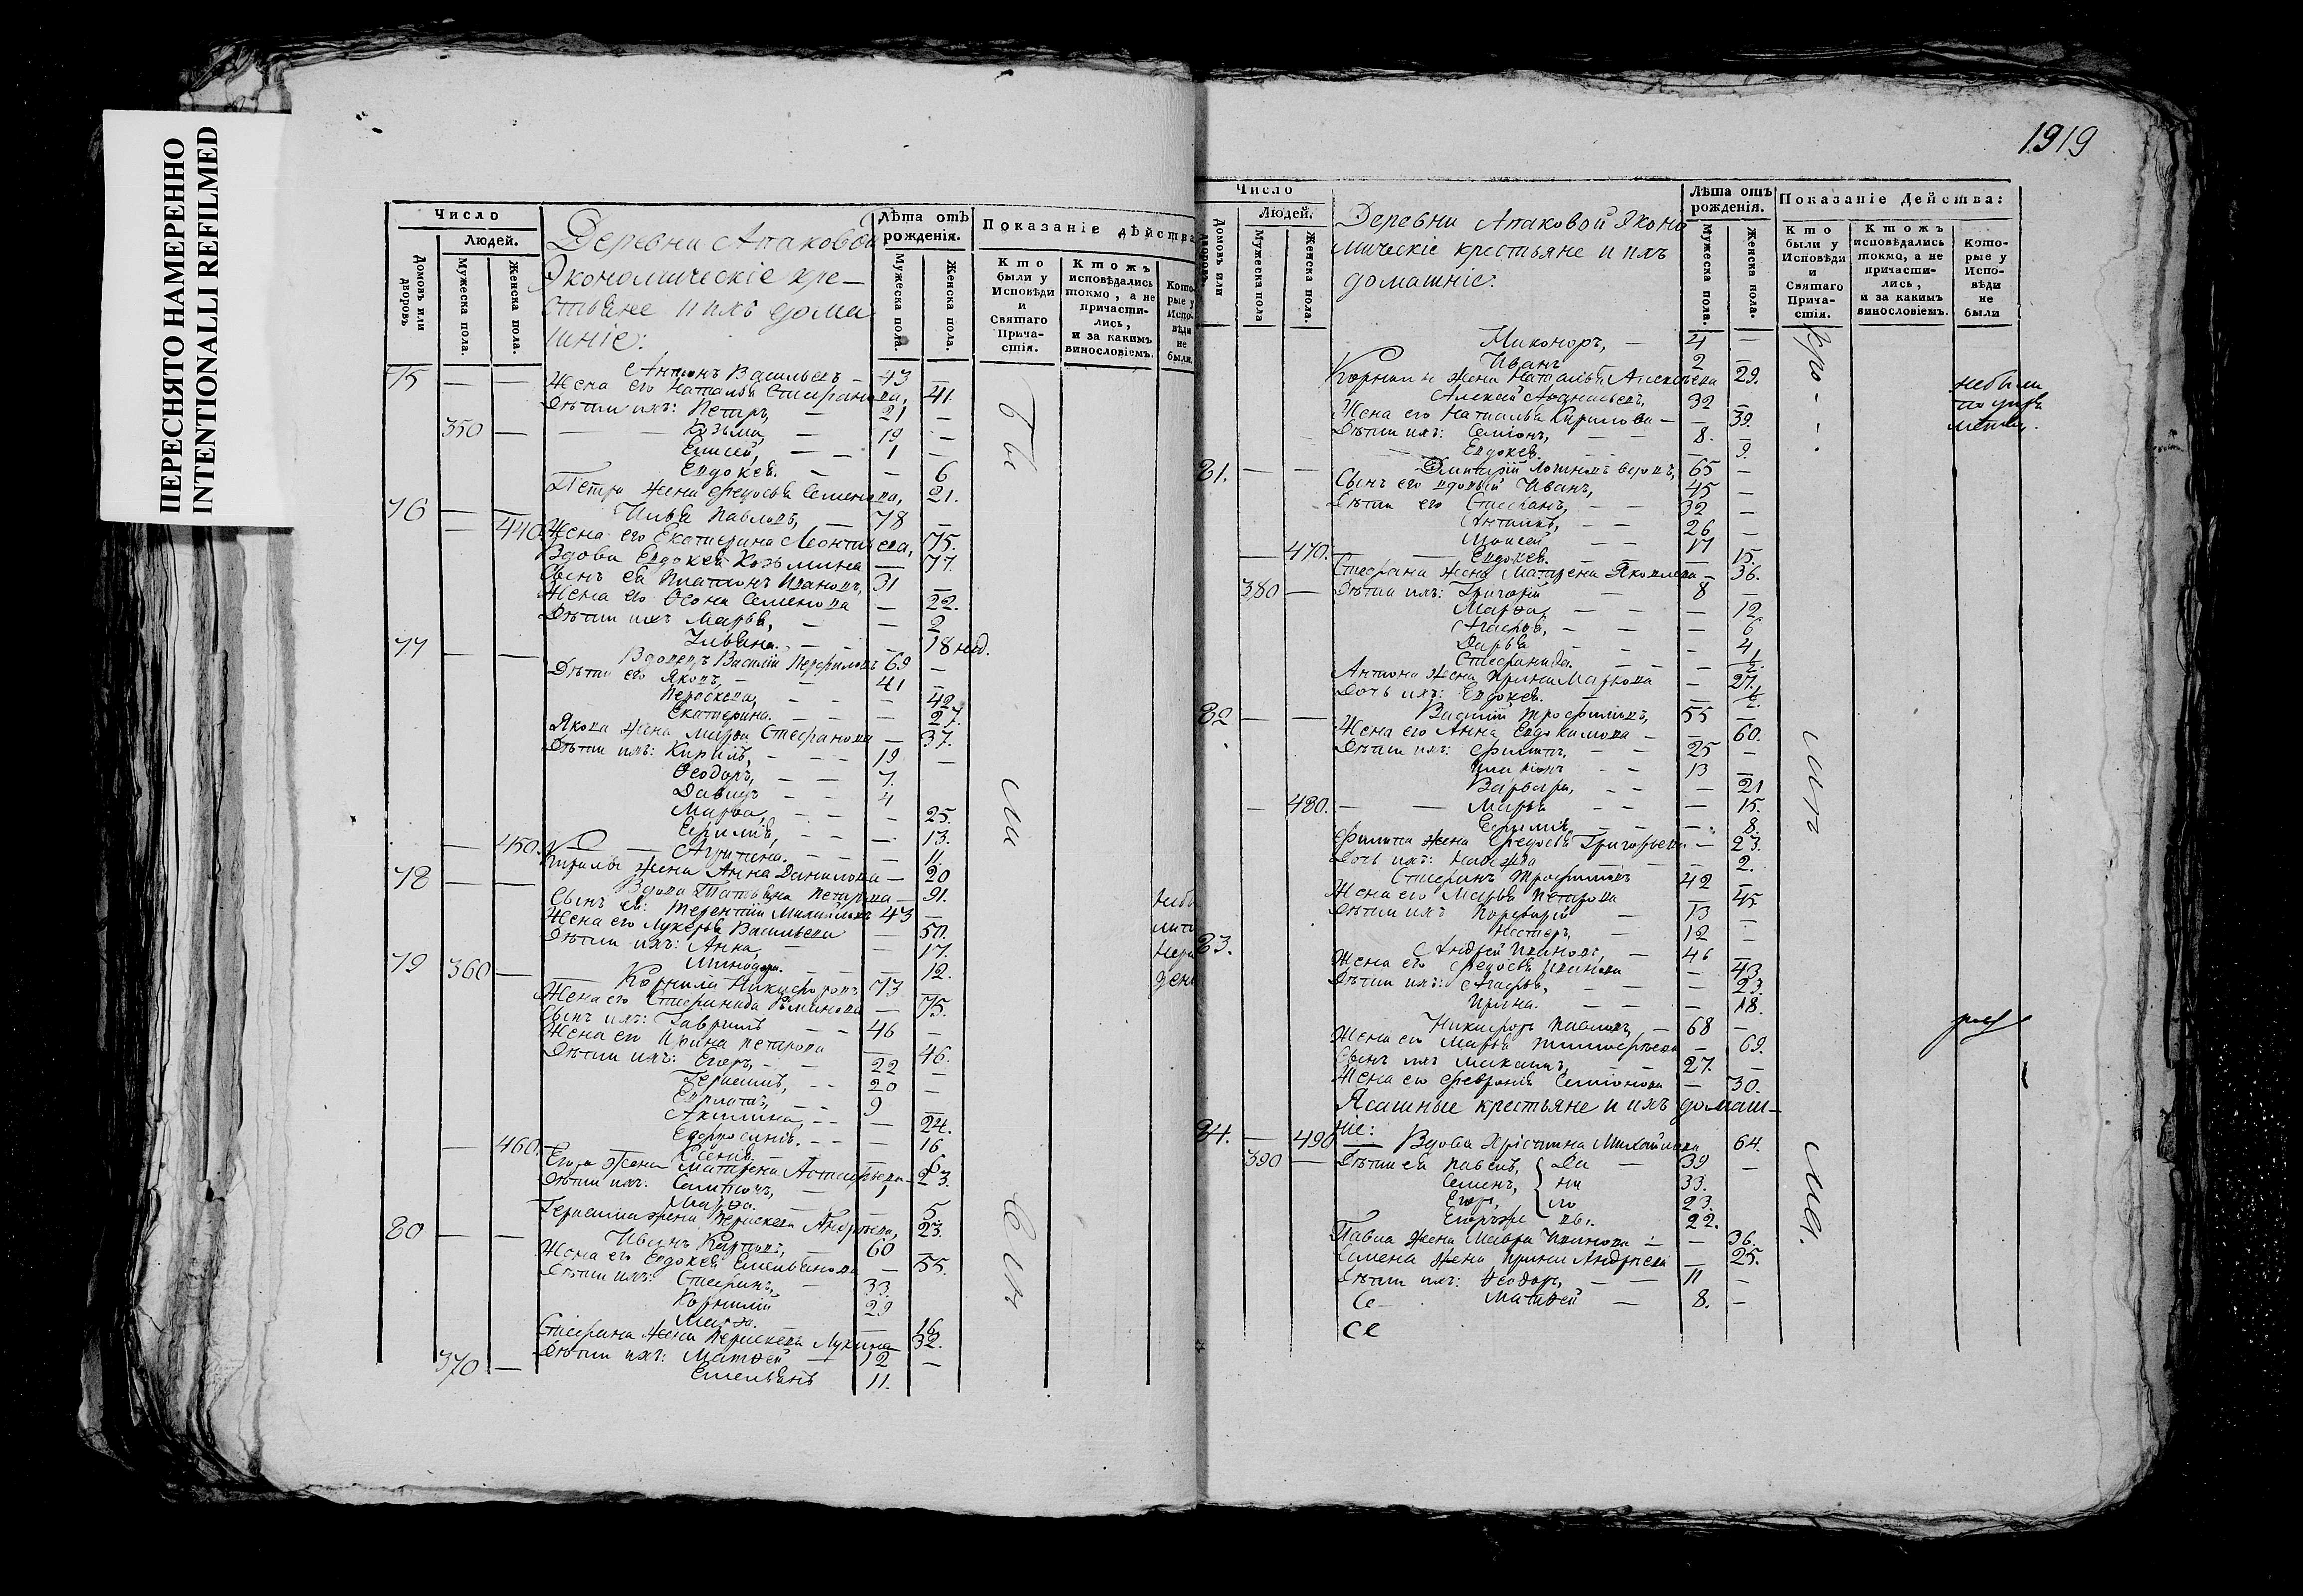 ПЕРЕСНЯТО НАМЕРЕННО
INTENTIONALLI REFILMED
Число
Людей.
Домовъ или дворовъ
Мужеска пола.
Женска пола.
Деревни Апаковой
Экономическіе кре-
стьяне и ихъ дома
шніе:
Лѣта отъ рожденія.
Мужеска пола.
Женска пола.
Показаніе дѣйства
Кто были у Исповѣди и Святаго Причастія.
Ктожъ исповѣдались токмо, а не причастились, и за какимъ винословіемъ.
Которые у Исповѣди не были.
75 — — Антонъ Васильевъ — 43 —
Жена его Наталья Стефанова, 41.
Дѣти ихъ: Петръ, — 21 —
350 — Козьма, — 19 —
Елисей, — 1 —
Евдокея. — — 6
Петра жена Федосья Семенова, 21.
76 — — Илья Павловъ, — 78 —
— 440. Жена его Екатерина Леонтьева, 75.
Вдова Евдокея Козьмина — 77.
Сынъ ея Платонъ Ивановъ, 31 —
Жена его Ѳеона Семенова — 22.
Дѣти ихъ Марья, — — 2
Ульяна. — — 18 нед.
77 — — Вдовецъ Василій Перфиловъ 69 —
Дѣти его Яковъ, — 41 —
Пераскева, — — 42.
Екатерина. — — 27.
Якова жена Марѳа Стефанова — 37.
Дѣти ихъ: Кирилъ, — 19 —
Ѳеодоръ, — 7.
Давидъ — 4
Марѳа, — — 25.
Ефимія, — — 13.
— 450. — Агрипина. — — 11.
Кирила жена Анна Данилова — 20
78 — — Вдова Татьяна Петрова — 91.
Сынъ ея: Терентій Михайловъ 43 —
Жена его Лукерья Васильева — 50.
Дѣти ихъ: Анна, — — 17.
Минодора. — — 12.
79 360 — Корнила Никифоровъ 73 —
Жена его Стефанида — 75.
Сынъ ихъ: Гаврилъ — 46 —
Жена его Ирина Петрова — 46.
Дѣти ихъ: Егоръ, — 22 —
Герасимъ, — 20 —
Евплатъ, — 9 —
Акилина, — — 24.
Ефросинія. — — 16
— 460. Ксенія. —
Егора жена Матрена Астафьева — 23.
Дѣти ихъ: — 1
Марѳа. — 5
Герасима жена Пераскева Андреева, 23.
80 — — Иванъ Карповъ, — 60 —
Жена его Евдокея Емельянова — 55.
Дѣти ихъ: Стефанъ, — 33.
Корнилій 29
Марѳа. — 16
Стефана жена Пераскева Лукина 32.
Дѣти ихъ: Матвей — 12 —
370 — Емельянъ 11.
Ти
ли
Си
1919
Число
Людей.
Домовъ или дворовъ.
Мужеска пола
Женска пола.
Деревни Апаковой Эконо
мическіе крестьяне и ихъ
домашніе:
Лѣта отъ рожденія.
Мужеска пола.
Женска пола.
Показаніе Действа:
Кто были у Исповѣди и Святаго Причастія.
Ктожъ исповѣдались токмо, а не причастились, и за какимъ винословіемъ.
Которые у Исповѣди не были
Миконоръ, — 4 —
Иванъ 2 —
Корнила жена Наталья Алексѣева 29.
Алексѣй Аѳанасьевъ, 32 —
Жена его Наталья Кирилова — 39.
Дѣти ихъ: Семіонъ, — 8. —
Евдокея. — 9.
81. — — Димитрій Логиновъ вдовъ, 65 —
Сынъ его вдовый Иванъ, 45 —
Дѣти его Стефанъ, — 32 —
Антонъ, — 26 —
Моисей — 17
— 470. — Евдокея. — 15.
Стефана жена Матрена Яковлева — 36.
380 — Дѣти ихъ: Григорій — 8 —
Марѳа, — — 12.
Агафья, — — 6
Дарья — — 4
Стефанида. — —
Антона жена Ирина Маркова — 27.
Дочь ихъ: Евдокея. —
82 — — Василій Трофимовъ, 55 —
Жена его Анна Евдокимова — 60.
Дѣти ихъ: Филипъ, — 25 —
13 —
Варвара, — — 21
— 480. — Марья — — 15.
Ефимія, — — 8.
Филипа жена Федосья Григорьева — 23.
Дочь ихъ: Надежда — 2.
Стефанъ Трофимовъ 42 —
Жена его Марья Петрова — 45
Дѣти ихъ Порфирій — 13 —
Несторъ, — 12 —
83. Андрей Ивановъ, — 46 —
Жена его Федосья Иванова — 43.
Дѣти ихъ: Агафья, — — 23.
Ирина. — — 18.
Никифоръ Павловъ, — 68 —
Жена его Марья Тимофеева — 69.
Сынъ ихъ Михаилъ, — 27. —
Жена его Февронія Семіонова — 30.
Ясашные крестьяне и ихъ домаш-
ніе:
84. — 490 — Вдова Христина Михайлова 64.
390 — Дѣти ея Павелъ, Да — 39 —
Семенъ, ни 33.
Егоръ, ло 23.
Егоръже вы. 22.
Павла жена Мавра Иванова — 36.
Семена жена Ирина Андреева — 25.
Дѣти ихъ: Ѳеодоръ, — 11 —
Се- Матвей — 8. —
Се